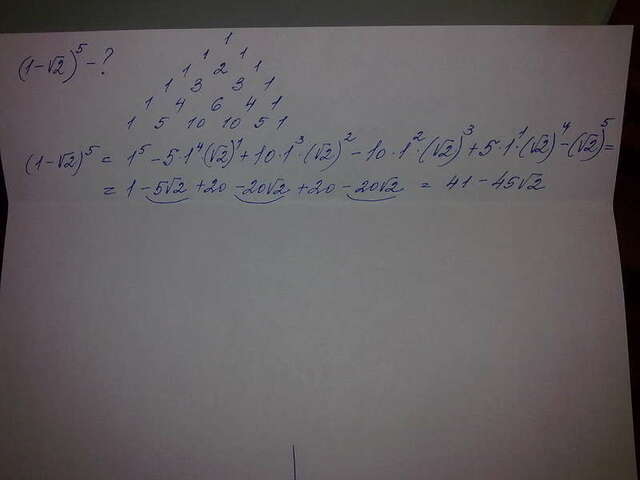 (1-√2)⁵ - ?
1
1 1
1 2 1
1 3 3 1
1 4 6 4 1
1 5 10 10 5 1
(1-√2)⁵ = 1⁵ - 5·1⁴(√2)¹ + 10·1³·(√2)² - 10·1²·(√2)³ + 5·1¹·(√2)⁴ - (√2)⁵ =
= 1 - 5√2 + 20 - 20√2 + 20 - 20√2 = 41 - 45√2